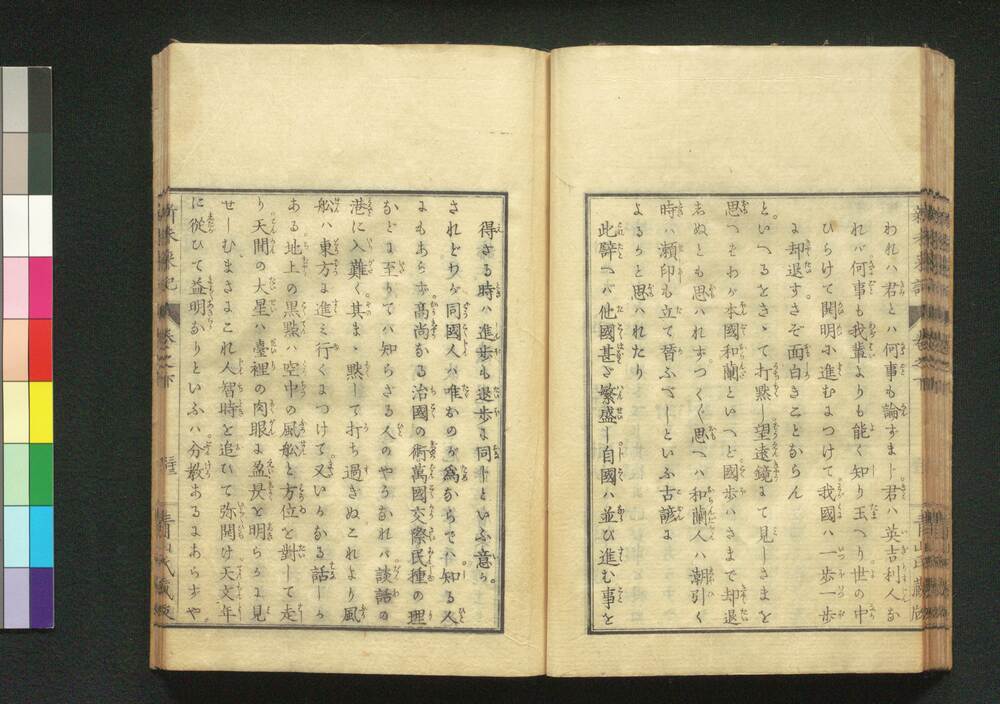 われハ君とハ何事も論ずまじ君ハ英吉利人な
れバ何事も我輩よりも能く知り玉へり世の中
ひらけて開明に進むにつけて我國ハ一歩一歩
に却退すさぞ面白きことならん
といへるをきゝて打黙し望遠鏡にて見しさまを
思へバわが本國和蘭といへど國歩ハさまで却退
しぬとも思ハれずつく〳〵思へバ和蘭人ハ潮引く
時ハ瀬印も立て替ふべしといふ古諺に
よるかと思ハれたり
此譬へバ他國甚ダ繁盛し自國ハ並び進む事を
得ざる時ハ進歩も退歩に同じといふ意か。
されどわが同國人ハ唯おのが為ならでハ知る人
にもあらず高尚なる治國の術萬國交際民種の理
などに至りてハ知らざる人のやうなれバ談話の
港に入難く其まゝ黙して打ち過ぎぬこれより風
舩ハ東方に進ミ行くにつけて又いかなる話しか
ある地上の黒點ハ空中の風舩と方位を對して走
り天間の大星ハ臺裡の肉眼に盈昃を明らかに見
せしむまさにこれ人智時を追ひて弥開け天文年
に從ひて益明なりといふハ分教あるにあらずや
新未来記 巻之下 青山氏蔵版